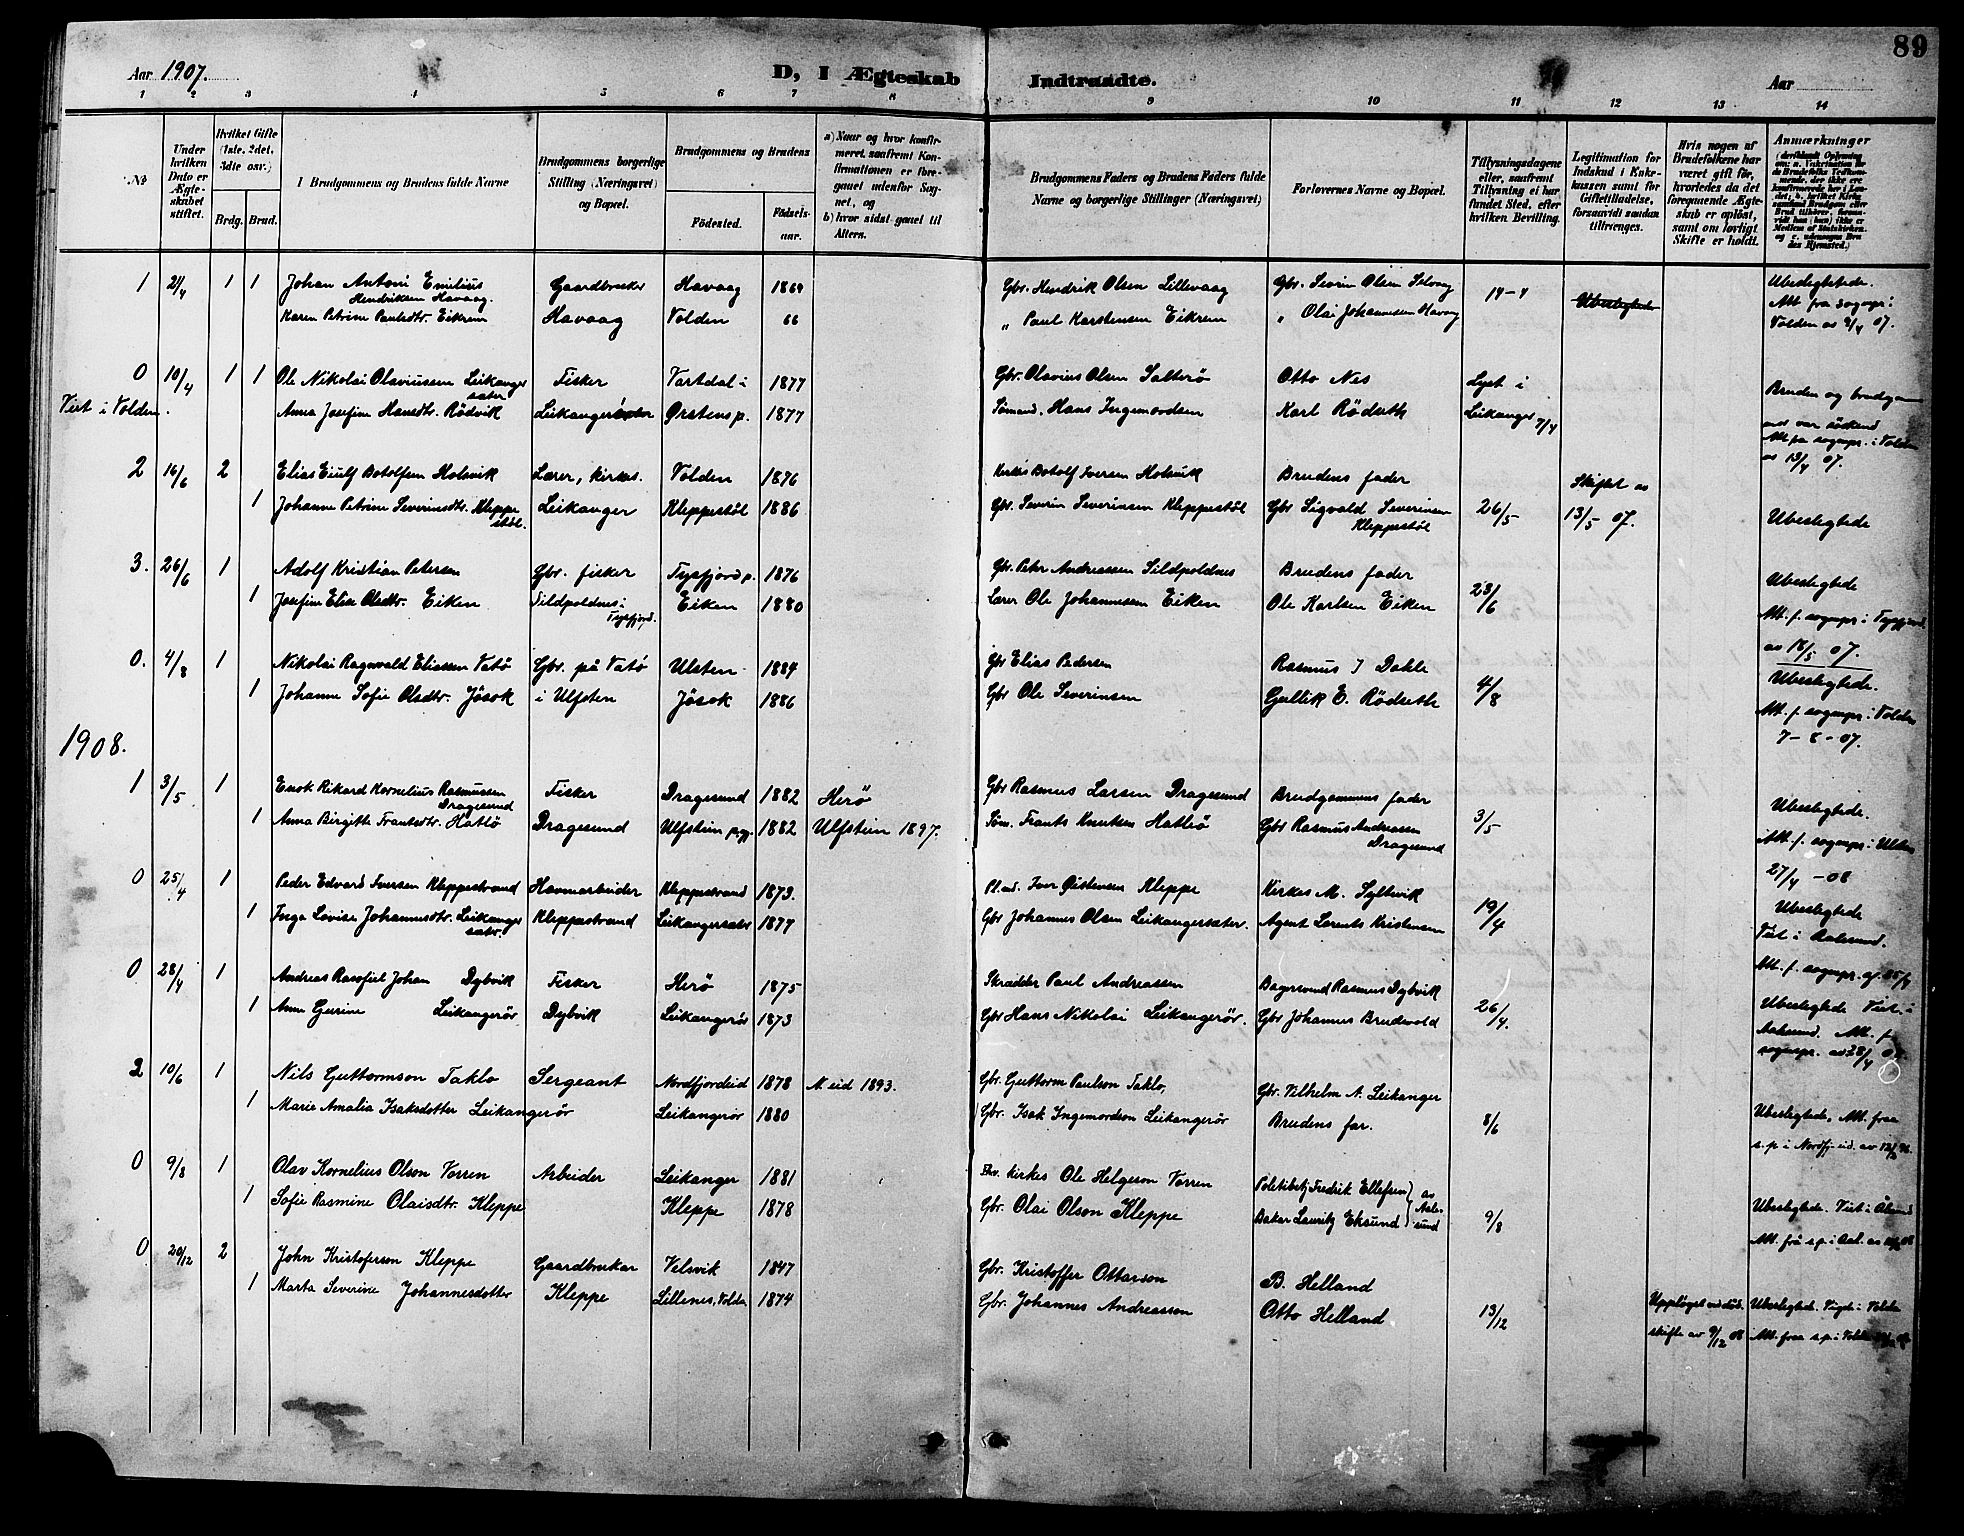 89
Aar 1907.
D, I Ægteskab Indtraadte.
Aar
1 2 3 4 5 6 7 8 9 10 11 12 13 14
No
Under hvilken Dato er Ægteskabet stiftet.
Hvilket Gifte (1ste, 2det, 3die osv.)
Brdg. Brud.
Brudgommens og Brudens fulde Navne
Brudgommens borgerlige Stilling (Næringsvei) og Bopæl.
Brudgommens og Brudens
Fødested.
Fødselsaar.
a) Naar og hvor konfirmeret, saafremt Konfirmationen er foregaaet udenfor Sognet, og
b) hvor sidst gaaet til Alters.
Brudgommens Faders og Brudens Faders fulde Navne og borgerlige Stillinger (Næringsvei)
Forlovernes Navne og Bopæl.
Tillysningsdagene eller, saafremt Tillysning ei har fundet Sted, efter hvilken Bevilling.
Legitimation for Indskud i Enkekassen samt for Giftetilladelse, forsaavidt saadan tiltrænges.
Hvis nogen af Brudefolkene har været gift før, hvorledes da det foregaaende Ægteskab er opløst, samt om lovligt Skifte er holdt.
Anmærkninger
1 2/4 1 1 Johan Antoni Emilius Hendriksen Havaag. Gaardbruker Havaag 1869 Gbr. Hendrik Olsen Lillevaag Gbr. Severin Olsen 14-4 Ubeslegtede
Karen Petrine Paulsdtr. Eikrem Havaag Volden 66 " Paul Karstensen Eikrem " Olai Johannesen Havaag
Ubeslegtede. Att. fra sognepr. i Volden av 9/4 07.
0 10/4 1 1 Ole Nikolai Olaviussen Leikangersæter Fisker Vartdal i 1877 Gbr. Olavius Olsen Sæterö Otto Nes Lyst i
Viet i Volden. Anna Josefine Hansdtr. Rödvik Leikangersæter Ørstensp. 1877 Sömand. Hans Ingemordsen Karl Rödseth Leikanger 7/4
Att. fra sognepr. i Volden av 13/4 07.
2 16/6 2 Elias Eiulf Botolfsen Holsvik Lærer, kirkes. Volden 1876 Kirkes Botolf Iversen Holsvik Brudens fader Skiftet av
1 Johanne Petrine Severinsdtr. Kleppestöl. Leikanger Kleppestöl 1886 Gbr. Severin Severinsen Kleppestöl Gbr Sigvald Severinsen Kleppestöl 26/5 13/5 07. Ubeslegtede
3. 26/6 1 Adolf Kristian Petersen Gbr. fisker Tysfjord p. 1876 Gbr. Peter Andreassen Sildpoldnes Brudens fader Ubeslegtede
1 Josefine Elise Olsdtr. Eiken Sildpoldnes i Tysfjord. Eiken 1880 Lærer Ole Johannesen Eiken Ole Karlsen Eiken 23/6
Att. f. sognepr. i Tysfjord. av 18/5 07.
0. 4/8 1 Nikolai Ragnvald Eliassen Vatö Gbr. på Vatö Ulsten 1884 Gbr Elias Pedersen Rasmus J Dahle Ubeslegtede.
1 Johanne Sofie Olsdtr. Jösok i Ulfsten Jösok 1886 Gbr Ole Severinsen Gullik E. Rödseth 4/8
Att. f. sognepr. i Volden 7-8-07.
1908.
1 3/5 1 Enok Rikard Kornelius Rasmussen Dragesund Fisker Dragesund 1882 Herö Gbr Rasmus Larsen Dragesund Brudgommens fader Ubeslegtede.
1 Anna Birgitte Frantsdtr. Hatlö Dragesund Ulfstein prgj. 1882 Ulfstein 1897. Söm. Frants Knutsen Hatlö Gbr Rasmus Andreassen Dragesund 3/5
Att. f. sognepr. i Ulsten 27/4-08
0 25/4 1 Peder Edvard Iversen Kleppestrand Havnarbeider Kleppestrand 1873. Pl.md. Iver Östensen Kleppe Kirkes M. Syltevik Ubeslegtede
1 Inga Lovise Johannesdtr. Leikangersætr. Kleppestrand Leikangersætr 1877 Gbr Johannes Olsen Leikangersæter. Agent Lorents Kristensen 19/4 Viet i Aalesund.
Att. f. sognepr. af 25/4
0 28/4 1 Andreas Johan Dybvik Fisker Herö 1875 Skrædder Paul Andreassen Rasmus Dybvik
1 Anne Gurine Leikangerör. Dybvik Leikangerör 1873 Gbr Hans Nikolai Leikangerör. Gbr Johannes Brudevold 26/4. Ubeslegtede Viet i Aalesund. Att. f. sognepr. av 28/4 08.
2 10/6 1 Nils Guttormson Taklo Sergeant Nordfjordeid 1878 N. eid 1893. Gbr. Guttorm Paulson Taklo, Gbr. Vilhelm A. Leikanger
1 Marie Amalia Isaksdotter Leikangerör Leikangerör 1880 Gbr. Isak Ingemordson Leikangerör Brudens far. 8/6 Ubeslegtede, Att. fraa s.p. i Nordfj. eid. av
0 9/8 1 Olav Kornelius Olson Vorren Arbeider Leikanger 1881 Fhv. Kirkes Ole Helgeson Vorren Politibetj Fredrik Ellefsen } av
1 Sofie Rasmine Olaisdtr. Kleppe Kleppe 1878 Gbr. Olai Olson Kleppe Baker Lauritz Eksund } Aalesund 9/8 Ubeslegtede. Viet i Ålesund
Att. frå s.p. i Aal. av
0 20/12 2 John Kristoferson Kleppe Gaardbrukar Velsvik 1847 Gbr. Kristoffer Ottarson B. Helland
1 Marta Severine Johannesdotter Kleppe Lillenes, Volda. 1874 Gbr. Johannes Andreasson Otto Helland 13/12 Upplöyst ved död. skifte av 9/12 08 Ubeslegtede. Vigde i Volda
Att. fraa s.p. i Volda